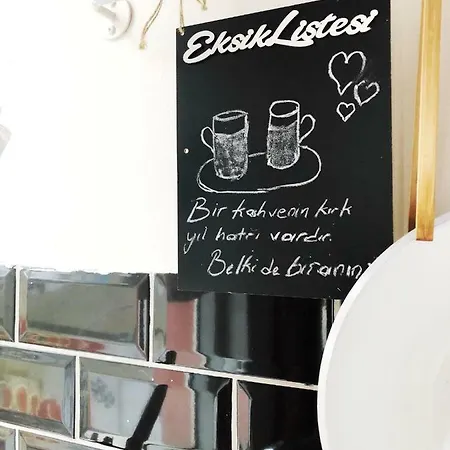 Eksik Listesi
Bir kahvenin kırk
yıl hatrı vardır.
Belki de biranın